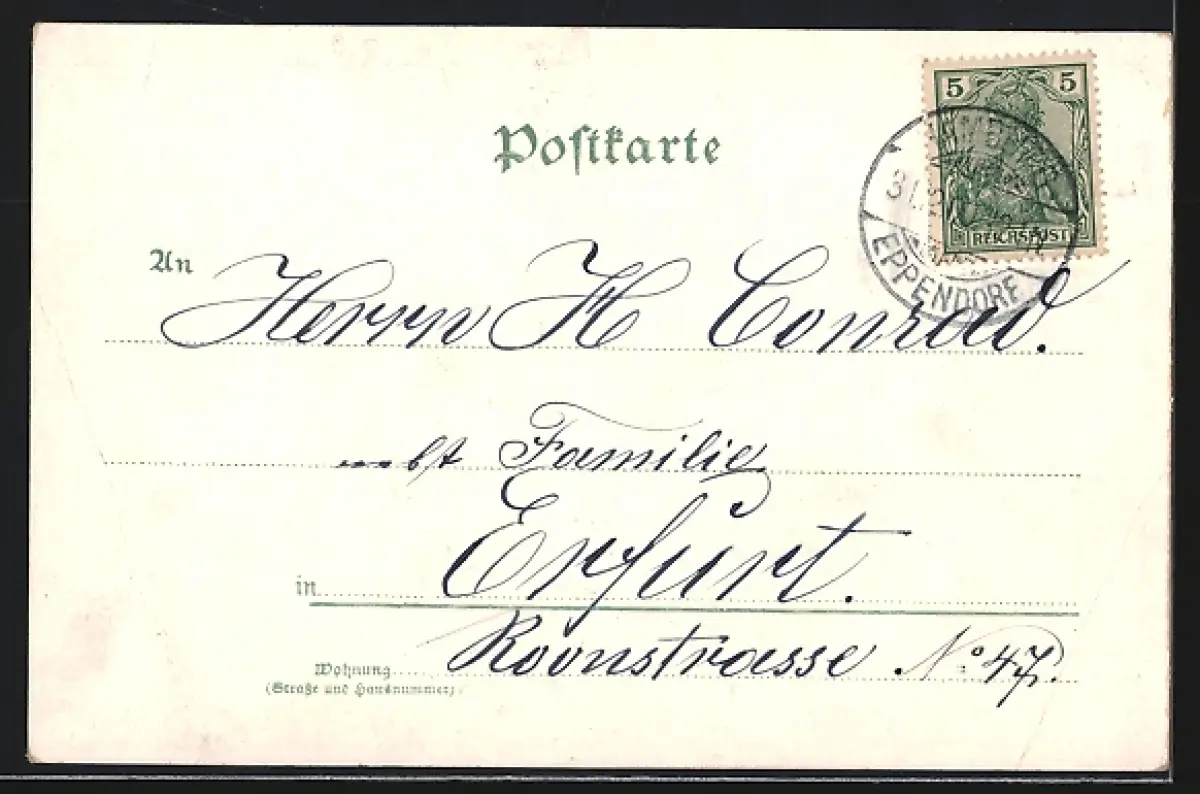 Postkarte
5 5
REICHSPOST
31.
EPPENDORF
An Herrn H Conrad.
nebst Familie
in Erfurt.
Wohnung Roonstrasse No 47.
(Straße und Hausnummer)